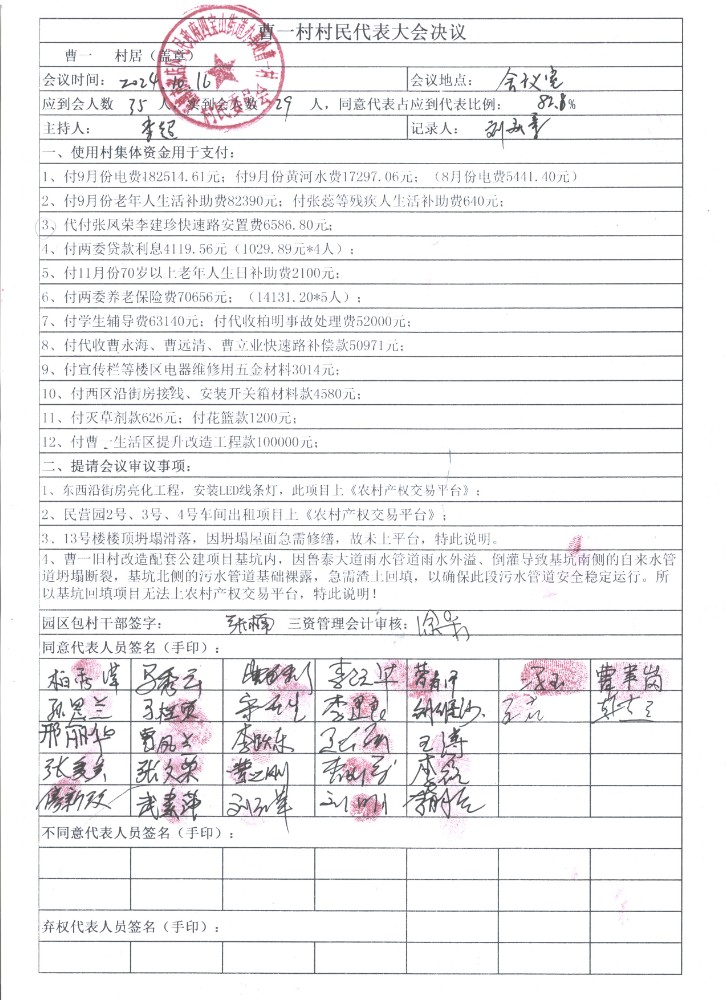 曹一村村民代表大会决议
曹一 村居（盖章）
会议时间： 2024.10.16 会议地点： 会议室
应到会人数 35 人，实到会人数 29 人，同意代表占应到代表比例： 82.8%
主持人： 李超 记录人：
一、使用村集体资金用于支付：
1、付9月份电费182514.61元；付9月份黄河水费17297.06元；（8月份电费5441.40元）
2、付9月份老年人生活补助费82390元；付张蕊等残疾人生活补助费640元；
3、代付张凤荣李建珍快速路安置费6586.80元；
4、付两委贷款利息4119.56元（1029.89元*4人）；
5、付11月份70岁以上老年人生日补助费2100元；
6、付两委养老保险费70656元；（14131.20*5人）；
7、付学生辅导费63140元；付代收柏明事故处理费52000元；
8、付代收曹永海、曹远清、曹立业快速路补偿款50971元；
9、付宣传栏等楼区电器维修用五金材料3014元；
10、付西区沿街房接线、安装开关箱材料款4580元；
11、付灭草剂款626元；付花篮款1200元；
12、付曹一生活区提升改造工程款100000元；
二、提请会议审议事项：
1、东西沿街房亮化工程，安装LED线条灯，此项目上《农村产权交易平台》；
2、民营园2号、3号、4号车间出租项目上《农村产权交易平台》；
3、13号楼楼顶坍塌滑落，因坍塌屋面急需修缮，故未上平台，特此说明。
4、曹一旧村改造配套公建项目基坑内，因鲁泰大道雨水管道雨水外溢、倒灌导致基坑南侧的自来水管
道坍塌断裂，基坑北侧的污水管道基础裸露，急需渣土回填，以确保此段污水管道安全稳定运行。所
以基坑回填项目无法上农村产权交易平台，特此说明！
园区包村干部签字： 张楠 三资管理会计审核：
同意代表人员签名（手印）：
柏秀滢 马秀云 曹军岗
孙恩兰
邢丽华 曹凤兰 李跃东 王涛
张久荣 李磊
刘刚
不同意代表人员签名（手印）：
弃权代表人员签名（手印）：